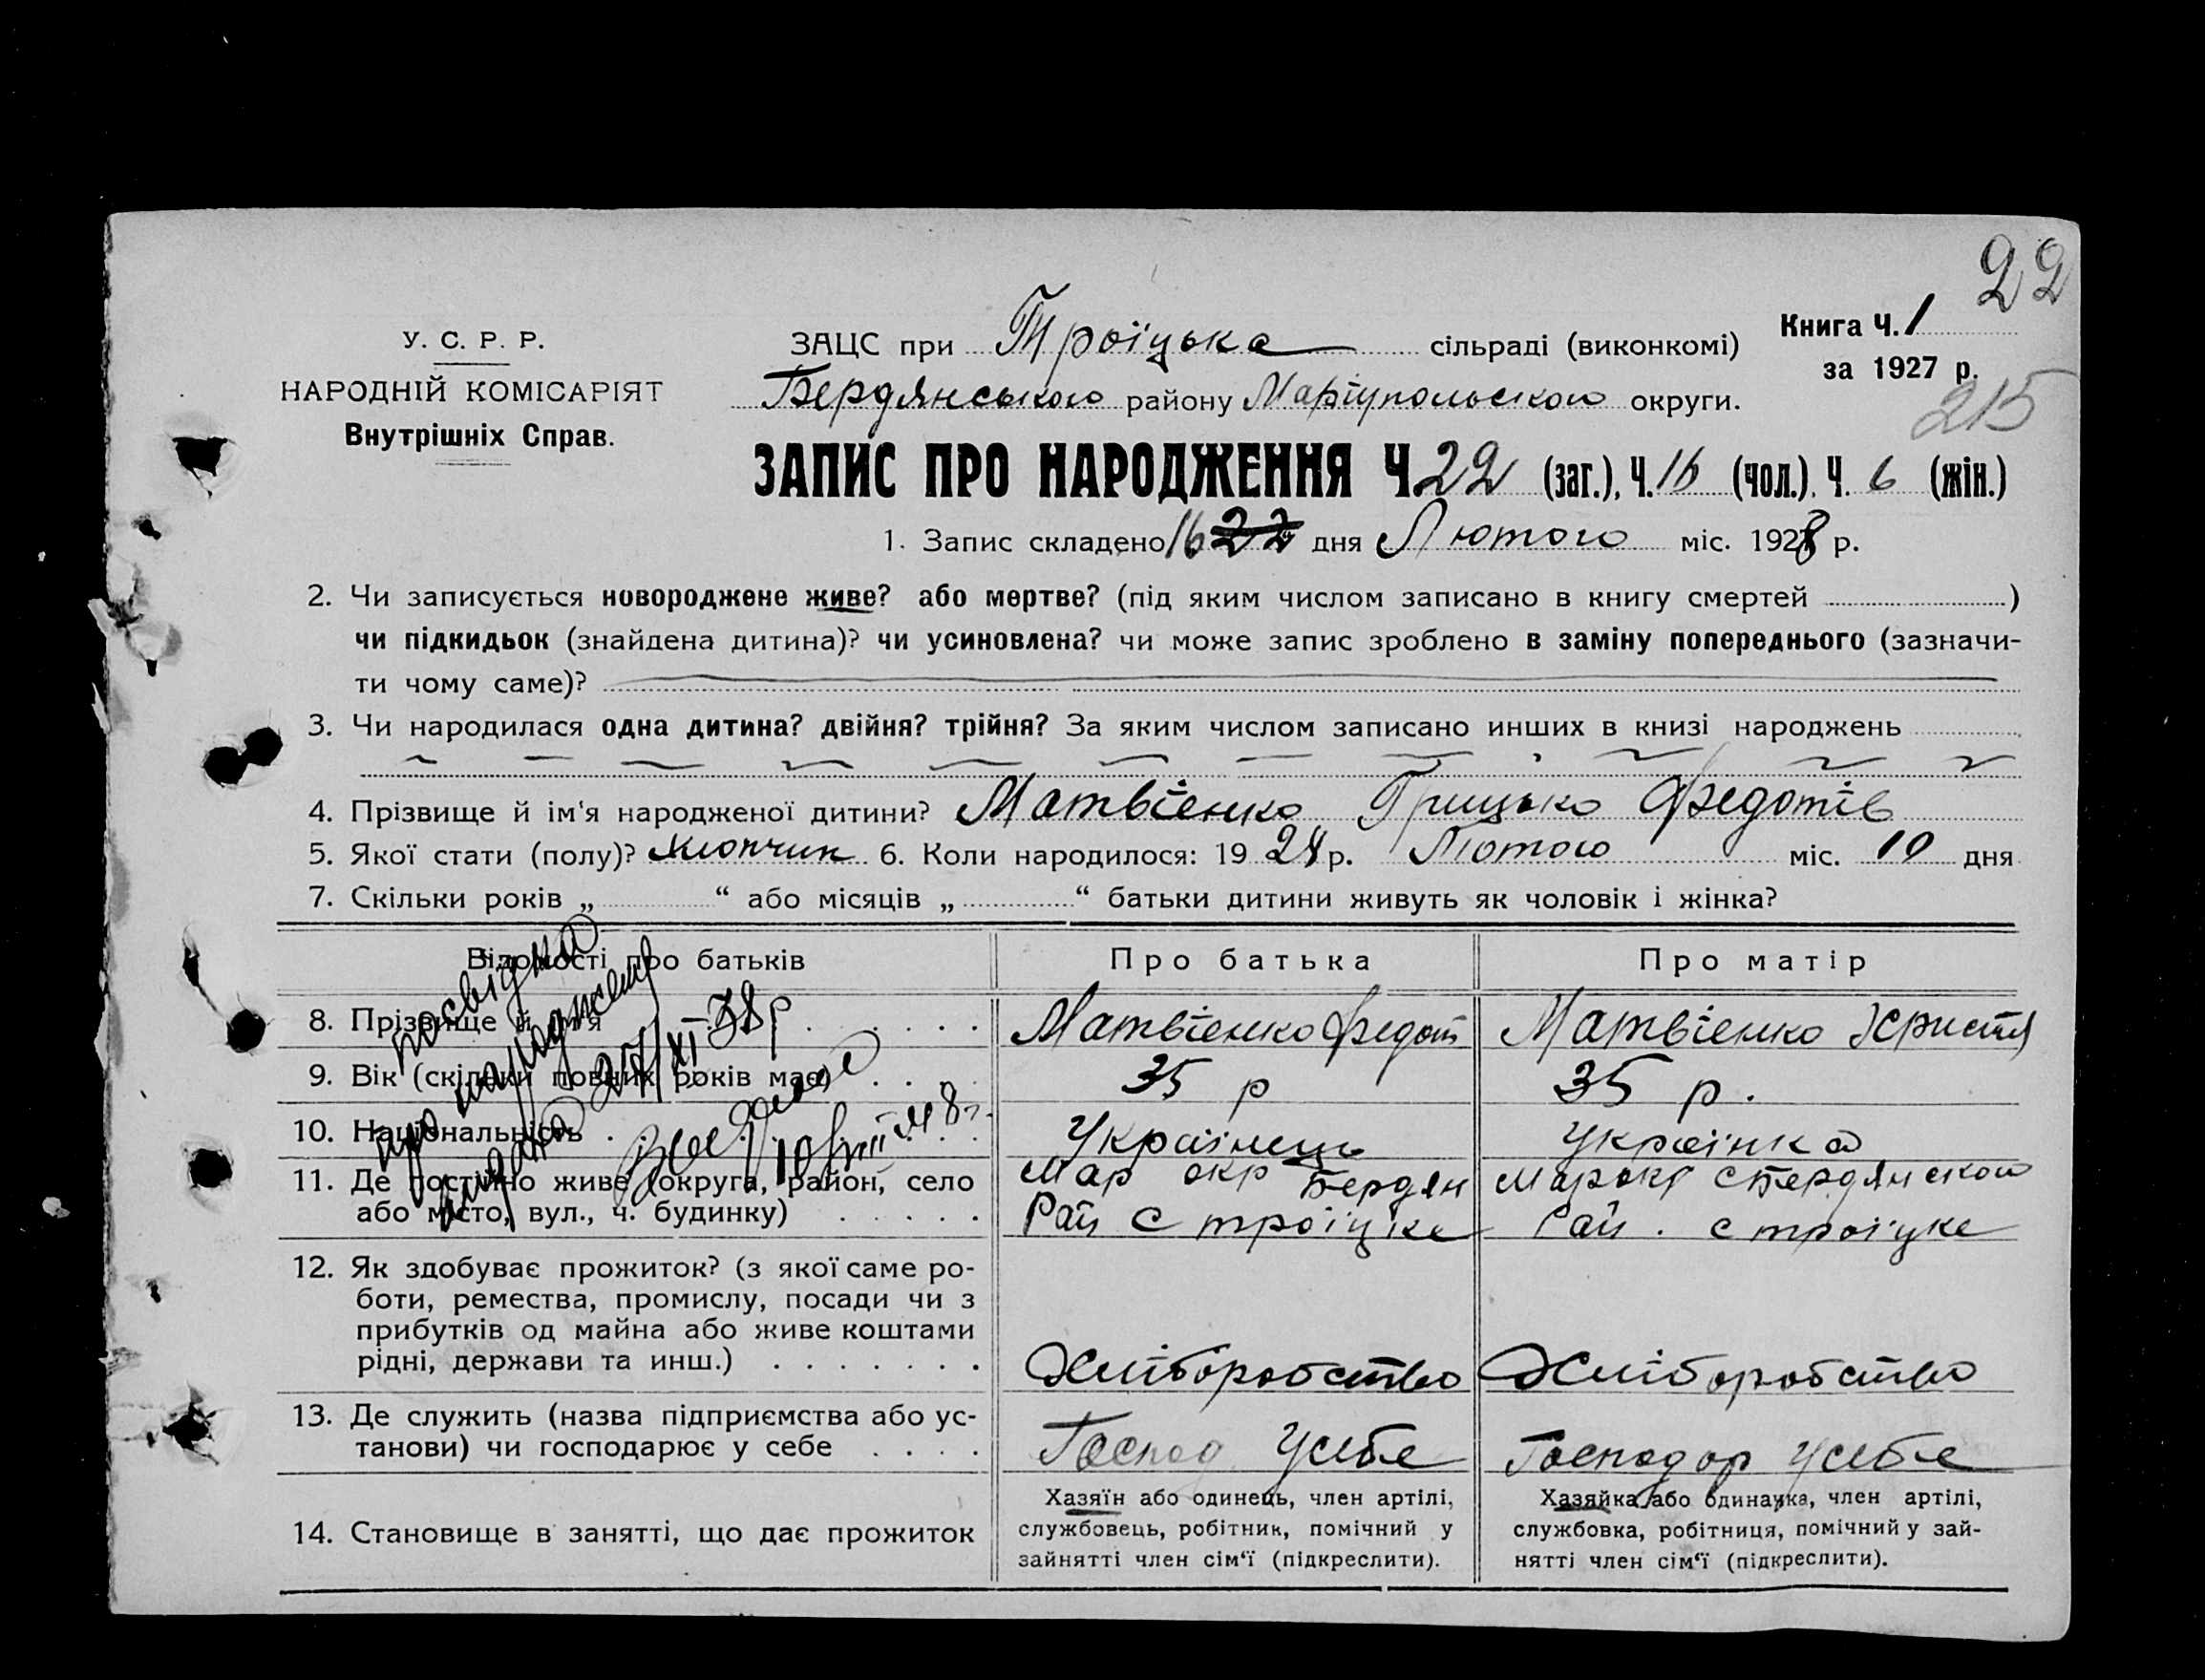 22
У. С. Р. Р.
НАРОДНІЙ КОМІСАРІЯТ
Внутрішніх Справ.
ЗАЦС при Троїцька сільраді (виконкомі)
Книга Ч. 1
за 1927 р.
Бердянського району Маріупольського округи.
215
ЗАПИС ПРО НАРОДЖЕННЯ Ч. 22 (заг.), Ч. 16 (чол.), Ч. 6 (жін.)
1. Запис складено 16 22 дня Лютого міс. 1928 р.
2. Чи записується новороджене живе? або мертве? (під яким числом записано в книгу смертей )
чи підкидьок (знайдена дитина)? чи усиновлена? чи може запис зроблено в заміну попереднього (зазначи-
ти чому саме)?
3. Чи народилася одна дитина? двійня? трійня? За яким числом записано инших в книзі народжень
4. Прізвище й ім'я народженої дитини? Матвієнко Грицько Федотів
5. Якої стати (полу)? хлопчик 6. Коли народилося: 19 28 р. Лютого міс. 10 дня
7. Скільки років „ “ або місяців „ “ батьки дитини живуть як чоловік і жінка?
Відомості про батьків
Про батька
Про матір
8. Прізвище й ім'я
Матвієнко Федот
Матвієнко Христя
9. Вік (скільки повних років має)
35 р
35 р.
10. Національність
Українець
Українка
11. Де постійно живе (округа, район, село
або місто, вул., ч. будинку)
Мар окр Бердян
Рай с троїцке
Мар окр Бердянского
Рай. с троїцке
12. Як здобуває прожиток? (з якої саме ро-
боти, ремества, промислу, посади чи з
прибутків од майна або живе коштами
рідні, держави та инш.)
Хліборобство
Хліборобство
13. Де служить (назва підприємства або ус-
танови) чи господарює у себе
Господ усебе
Господар усебе
14. Становище в занятті, що дає прожиток
Хазяїн або одинець, член артілі,
службовець, робітник, помічний у
зайнятті член сім'ї (підкреслити).
Хазяйка або одиначка, член артілі,
службовка, робітниця, помічний у зай-
нятті член сім'ї (підкреслити).
посвідка
про народжень
видана 27/XI-38р
10/VIII 48 г.